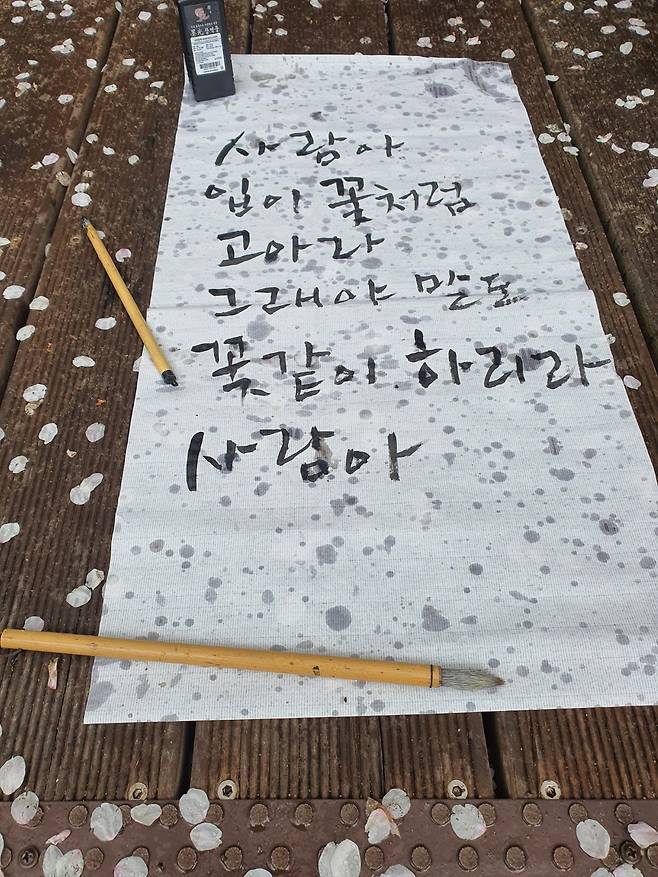 사람아
입이 꽃처럼
고아라
그래야 말도
꽃같이 하리라
사람아